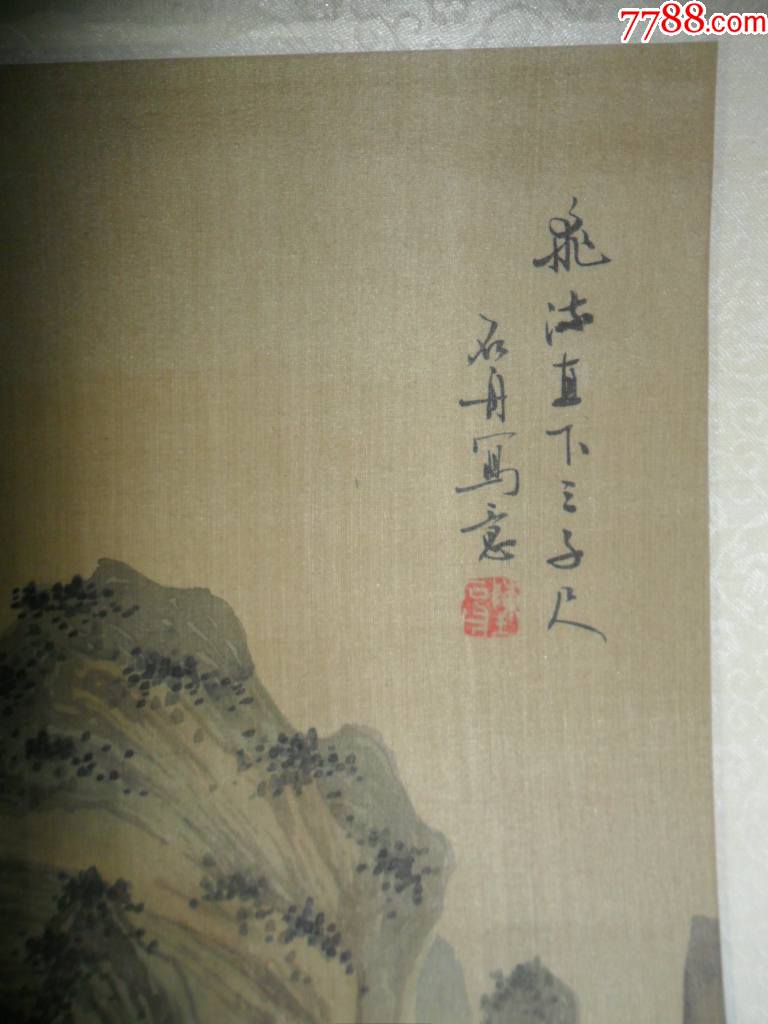 7788.com
飛流直下三千尺
石舟寫意